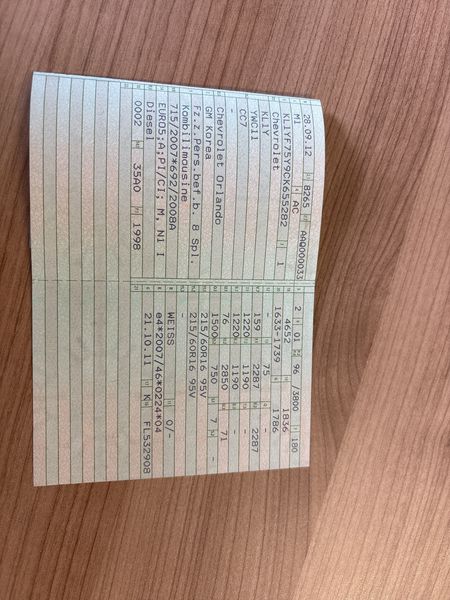 28.09.12 8265 AAQ000033
M1 AC
KL1YF75Y9CK655282 1
Chevrolet
KL1Y
YWC11
CC7
-
Chevrolet Orlando
GM Korea
Fz.z.Pers.bef.b. 8 Spl.
Kombilimousine
715/2007*692/2008A
EURO5;A;PI/CI; M, N1 I
Diesel
0002 35A0 1998
2 01 96 /3800 180
4652 1836
1633-1739 1786
- 75 -
159 2287 2287
1220 1190 -
1220 1190 -
76 2850 71
1500 750 7 -
215/60R16 95V
215/60R16 95V
-
WEISS 0/-
e4*2007/46*0224*04
21.10.11 K FL532908